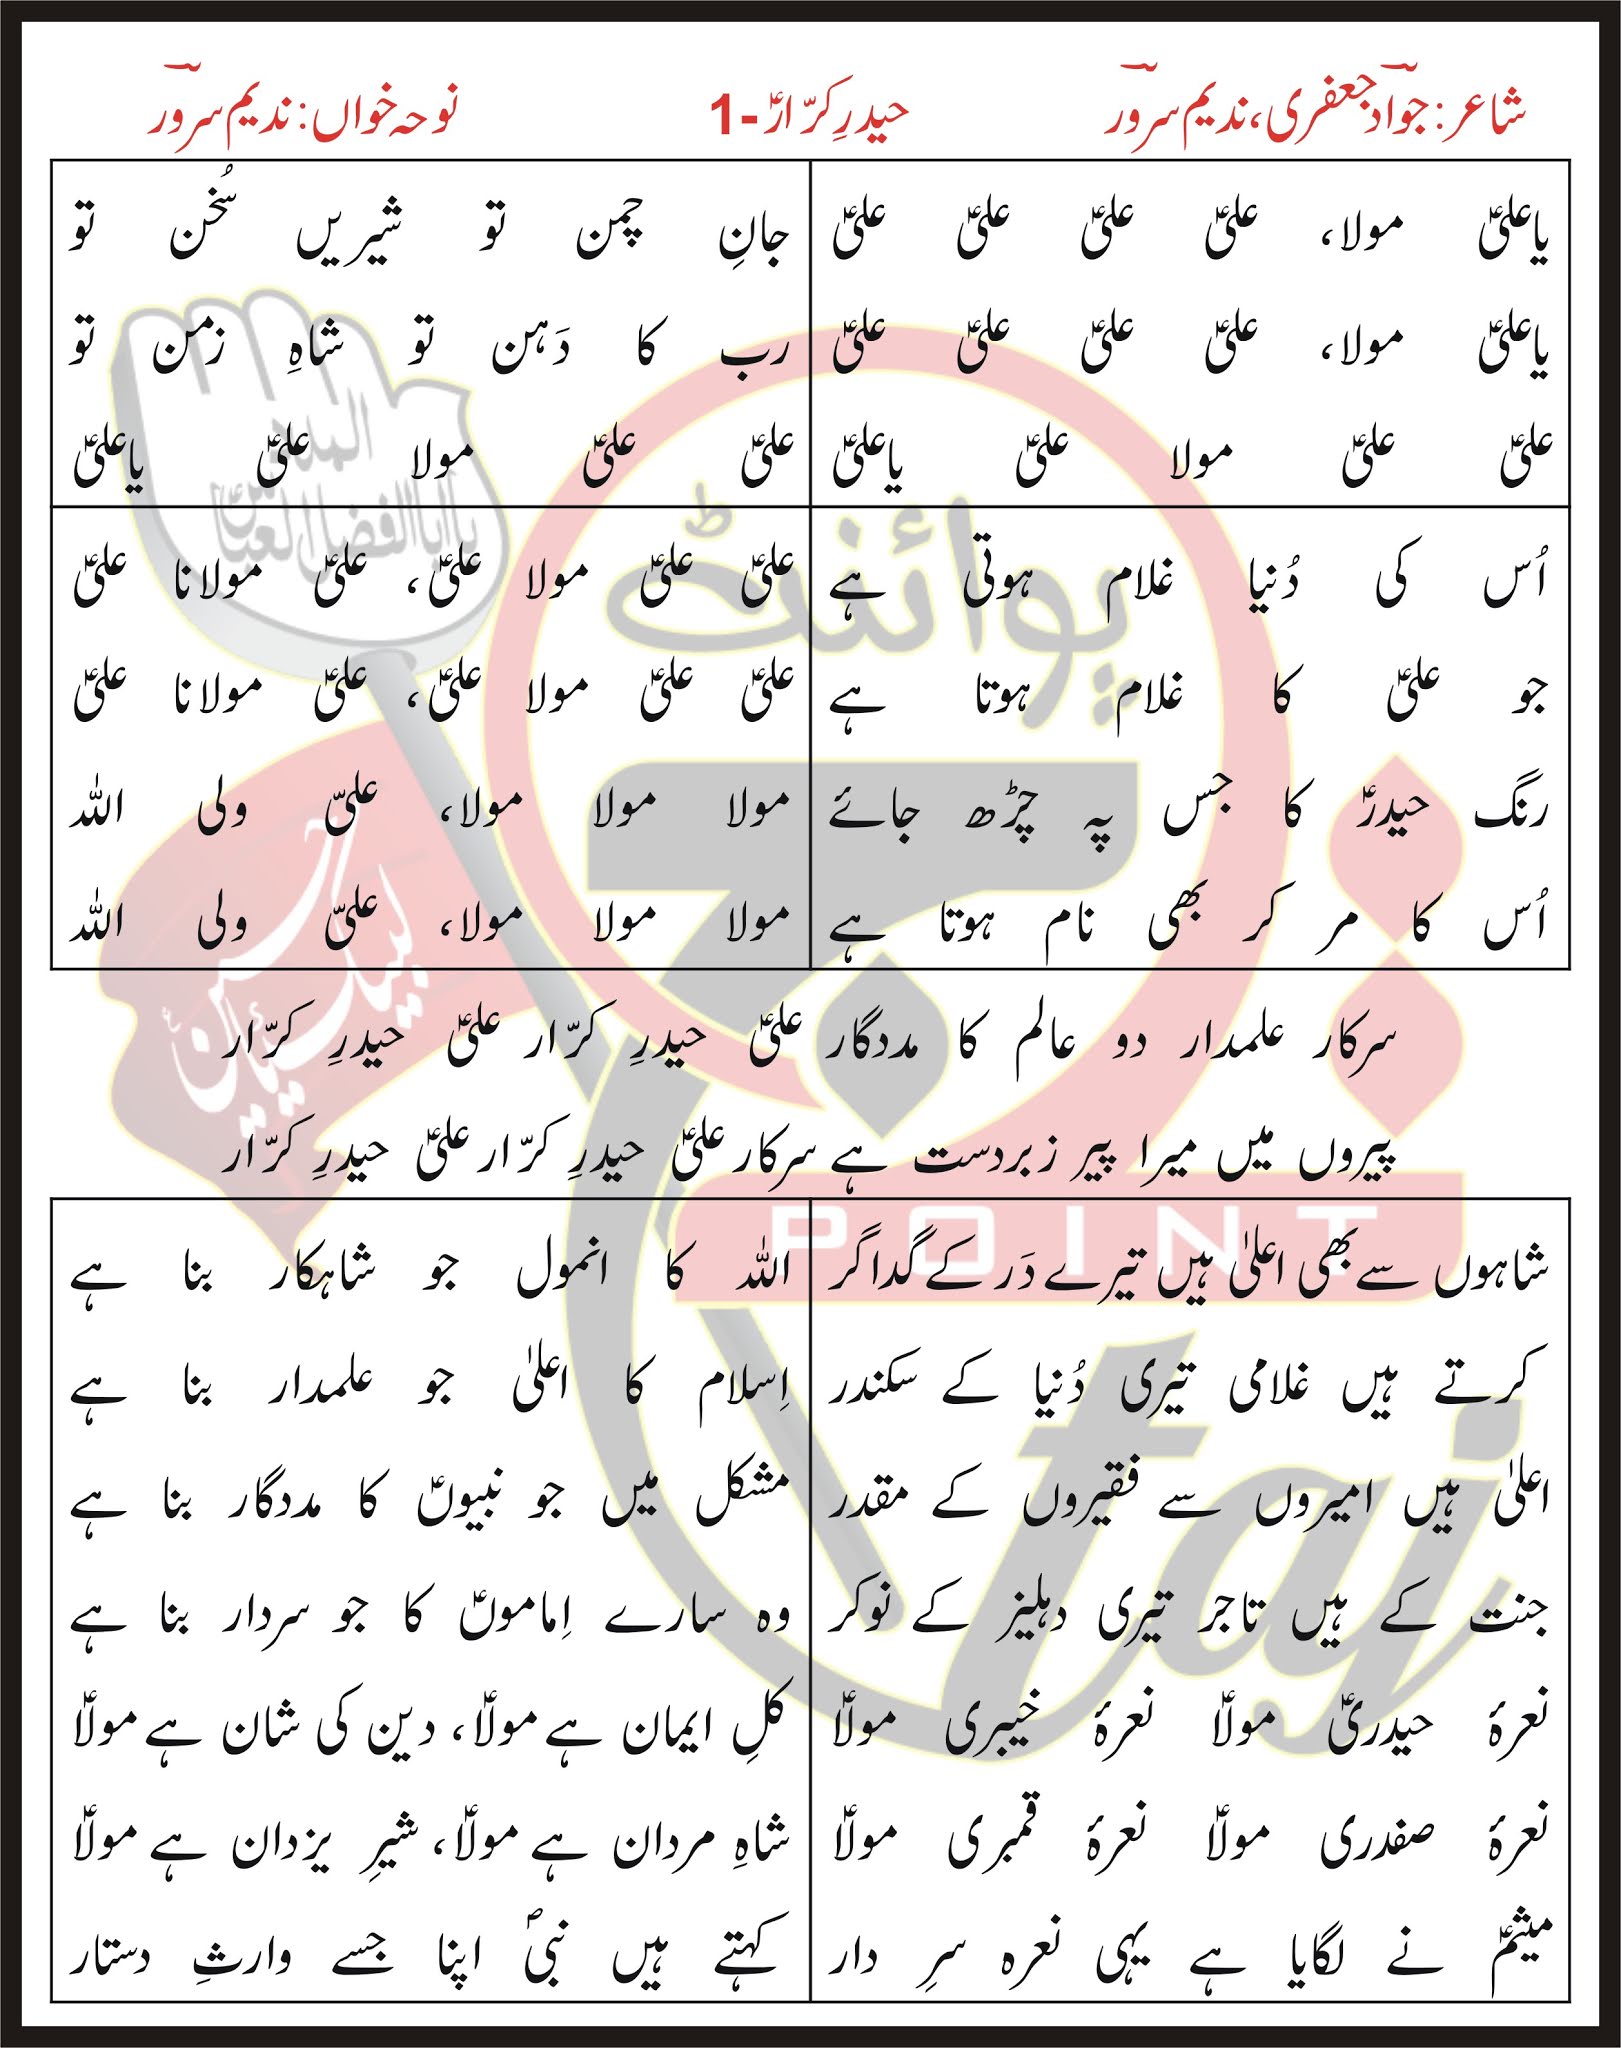 شاعر: جوادؔ جعفری، ندیم سرورؔ
حیدرِ کرّارؑ -1
نوحہ خواں: ندیم سرورؔ
یاعلیؑ مولا، علیؑ علیؑ علیؑ علیؑ
یاعلیؑ مولا، علیؑ علیؑ علیؑ علیؑ
علیؑ علیؑ مولا علیؑ یاعلیؑ
جانِ چمن تو شیریں سُخن تو
رب کا دَہن تو شاہِ زمن تو
علیؑ علیؑ مولا علیؑ یاعلیؑ
اُس کی دُنیا غلام ہوتی ہے
جو علیؑ کا غلام ہوتا ہے
رنگ حیدرؑ کا جس پہ چڑھ جائے
اُس کا مر کر بھی نام ہوتا ہے
علیؑ علیؑ مولا علیؑ، علیؑ مولانا علیؑ
علیؑ علیؑ مولا علیؑ، علیؑ مولانا علیؑ
مولا مولا مولا، علیؑ ولی اللہ
مولا مولا مولا، علیؑ ولی اللہ
سرکار علمدار دو عالم کا مددگار علیؑ حیدرِ کرّار علیؑ حیدرِ کرّار
پیروں میں میرا پیر زبردست ہے سرکار علیؑ حیدرِ کرّار علیؑ حیدرِ کرّار
شاہوں سے بھی اعلیٰ ہیں تیرے دَر کے گداگر
کرتے ہیں غلامی تیری دُنیا کے سکندر
اعلیٰ ہیں امیروں سے فقیروں کے مقدر
جنت کے ہیں تاجر تیری دہلیز کے نوکر
نعرۂ حیدریؑ مولاؑ نعرۂ خیبری مولاؑ
نعرۂ صفدری مولاؑ نعرۂ قمبری مولاؑ
میثمؑ نے لگایا ہے یہی نعرہ سرِ دار
اللہ کا انمول جو شاہکار بنا ہے
اِسلام کا اعلیٰ جو علمدار بنا ہے
مشکل میں جو نبیوںؑ کا مددگار بنا ہے
وہ سارے اِماموںؑ کا جو سردار بنا ہے
کلِ ایمان ہے مولاؑ، دین کی شان ہے مولاؑ
شاہِ مردان ہے مولاؑ، شیرِ یزدان ہے مولاؑ
کہتے ہیں نبیؐ اپنا جسے وارثِ دستار
پوائنٹ
POINT
taj